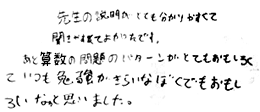 先生の説明が とても分かりやすくて
聞きやすくてよかったです。
あと算数の問題のパターンがとてもおもしろく
ていつも勉強がきらいなぼくでもおもし
ろいなっと思いました。